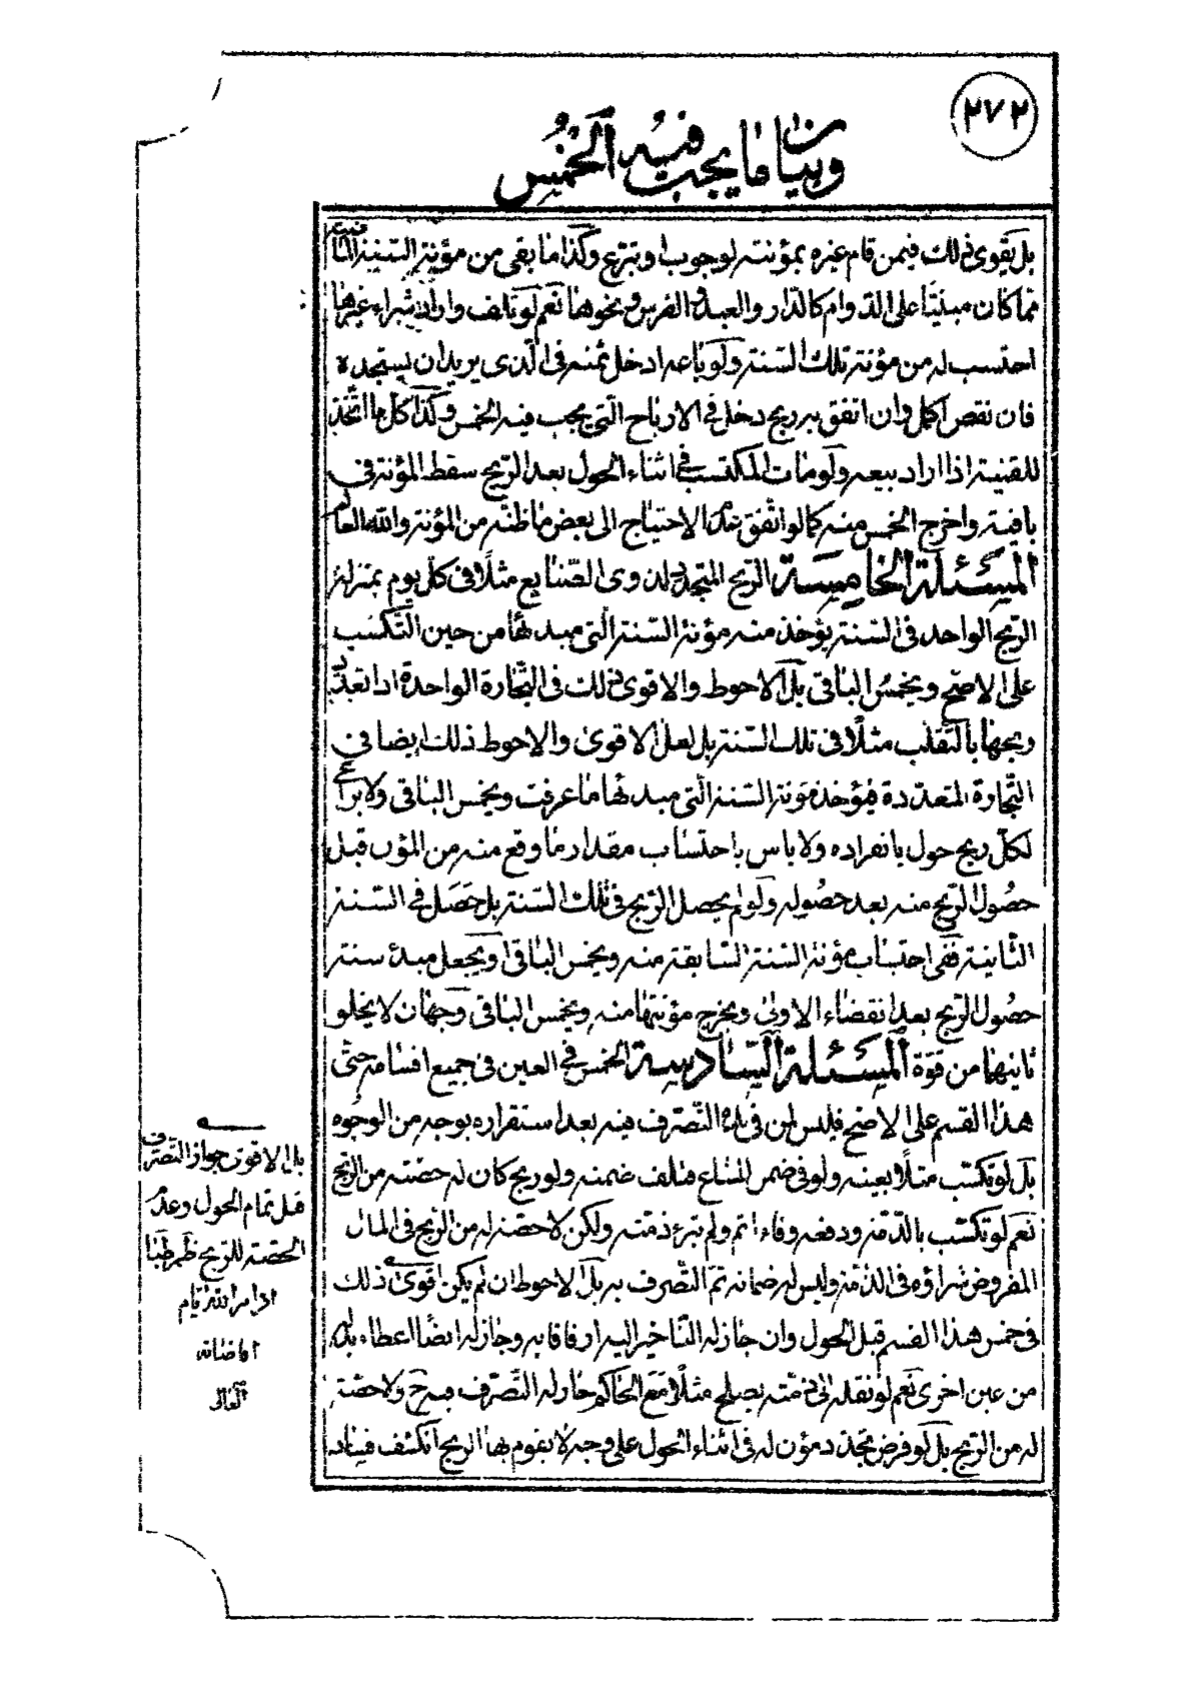 ٢٧٢
وبيان ما يجب فيه الخمس
بل يقوى ذلك فيمن قام غيره بمؤنته لوجوب او تبرع وكذا ما بقى من مؤنة السنة الماضية
مما كان مبنيّا على الدوام كالدار والعبد والفرس ونحوها نعم لو تلف واراد شراء غيرها
احتسب له من مؤنة تلك السّنة ولو باعه ادخل ثمنه فى الّذى يريد ان يستجده
فان نقص اكمل وان اتفق به ربح دخل فى الارباح الّتى يجب فيه الخمس وكذا كلّ ما اتّخذ
للقنية اذا اراد بيعه ولو مات المكتسب فى اثناء الحول بعد الرّبح سقط المؤنة فى
باقيه واخرج الخمس منه كما لو اتّفق عدم الاحتياج الى بعض ما ظنّه من المؤنة والله العالم
المسئلة الخامسة الرّبح المتجدد لذوى الصّنايع مثلًا فى كلّ يوم بمنزلة
الرّبح الواحد فى السّنة يؤخذ منه مؤنة السّنة الّتى مبدئها من حين التّكسّب
على الاصّح ويخمّس الباقى بل الاحوط والاقوى ذلك فى التّجارة الواحدة اذا تعدّد
ربحها بالتّقلب مثلًا فى تلك السّنة بل لعل الاقوى والاحوط ذلك ايضا فى
التّجارة المتعدّدة فيؤخذ مؤنة السّنة الّتى مبدئها ما عرفت ويخمس الباقى ولا يراعى
لكلّ ربح حول بانفراده ولا باس باحتساب مقدار ما وقع منه من المؤن قبل
حصُول الرّبح منه بعد حصُوله ولو لم يحصل الرّبح فى تلك السّنة بل حَصَل فى السّنة
الثّانية ففى احتساب مؤنة السّنة السّابقة منه ويخمس الباقى او يجعل مبدء سنته
حصُول الرّبح بعد انقضاء الاولىٰ ويخرج مؤنتها منه ويخمس الباقى وجهان لا يخلو
ثانيهما من قوّة المسئلة السّادسة الخمس فى العين فى جميع اقسامه حتّى
هذا القسم على الاصّح فليس لمن فى يده التّصرف فيه بعد استقراره بوجه من الوجُوه
بل لو تكسّب مثلًا بعينه ولو فى ضمن المشاع فتلف ضمنه ولو ربح كان له حصّته من الرّبح
نعم لو تكسّب بالذّمة ودفعه وفاء اثم ولم تبرء ذمّته ولكن لا حصّة له من الرّبح فى المال
المفروض شراؤه فى الذّمة وليس له ضمانه ثمّ التّصرف به بل الاحوط ان لم يكن اقوى ذلك
فى خمس هذا القسم قبل الحول وان جاز له التّاخير اليه ارفاقا به وجاز له ايضًا اعطاء بدله
من عين اخرى نعم لو نقله الى ذمّته بصلح مثلًا مع الحاكم جاز له التّصرف فيه ح ولا حصّة
له من الرّبح بل لو فرض تجدّد مؤن له فى اثناء الحول على وجه لا يقوم بها الربح انكشف فساد
بل الاقوى جواز التّصرف
قبل تمام الحول وعدم
الحصّة للرّبح ظم طبا
ادام الله ايّام
افاضاته
العالى